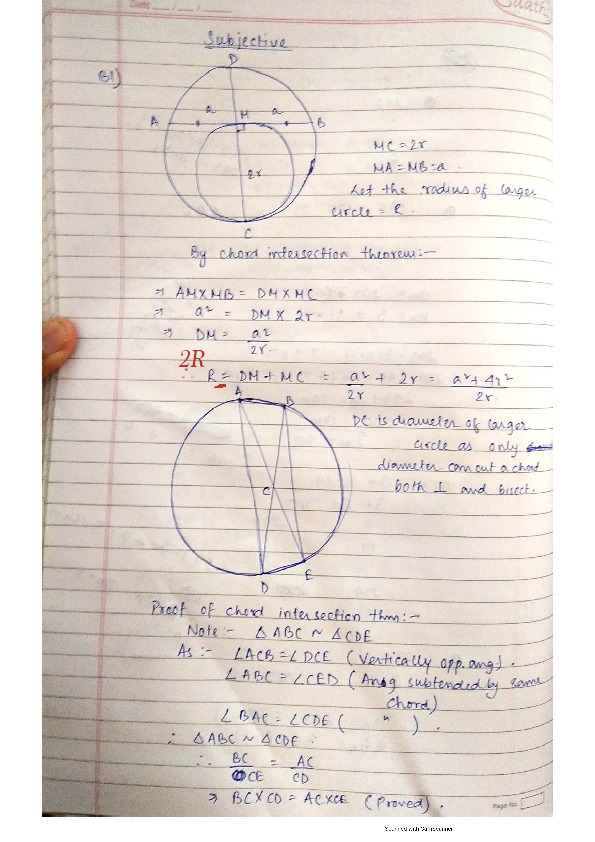 Date __/__/__
Subjective
B1)
D
A
a
M
a
B
2r
C
MC = 2r
MA = MB = a
Let the radius of larger
circle = R.
By chord intersection theorem:-
⇒ AM×MB = DM×MC
⇒ a² = DM × 2r
⇒ DM = a²/2r
2R
∴ R = DM + MC = a²/2r + 2r = a² + 4r²/2r
A
B
C
D
E
DC is diameter of larger
circle as only
diameter can cut a chord
both ⊥ and bisect.
Proof of chord intersection thm:-
Note:- △ABC ~ △CDE
As:- ∠ACB = ∠DCE (Vertically opp. ang).
∠ABC = ∠CED (Ang subtended by same
chord)
∠BAC = ∠CDE ( " ).
∴ △ABC ~ △CDE.
∴ BC/CE = AC/CD
⇒ BC×CD = AC×CE (Proved).
Page No.
Scanned with CamScanner